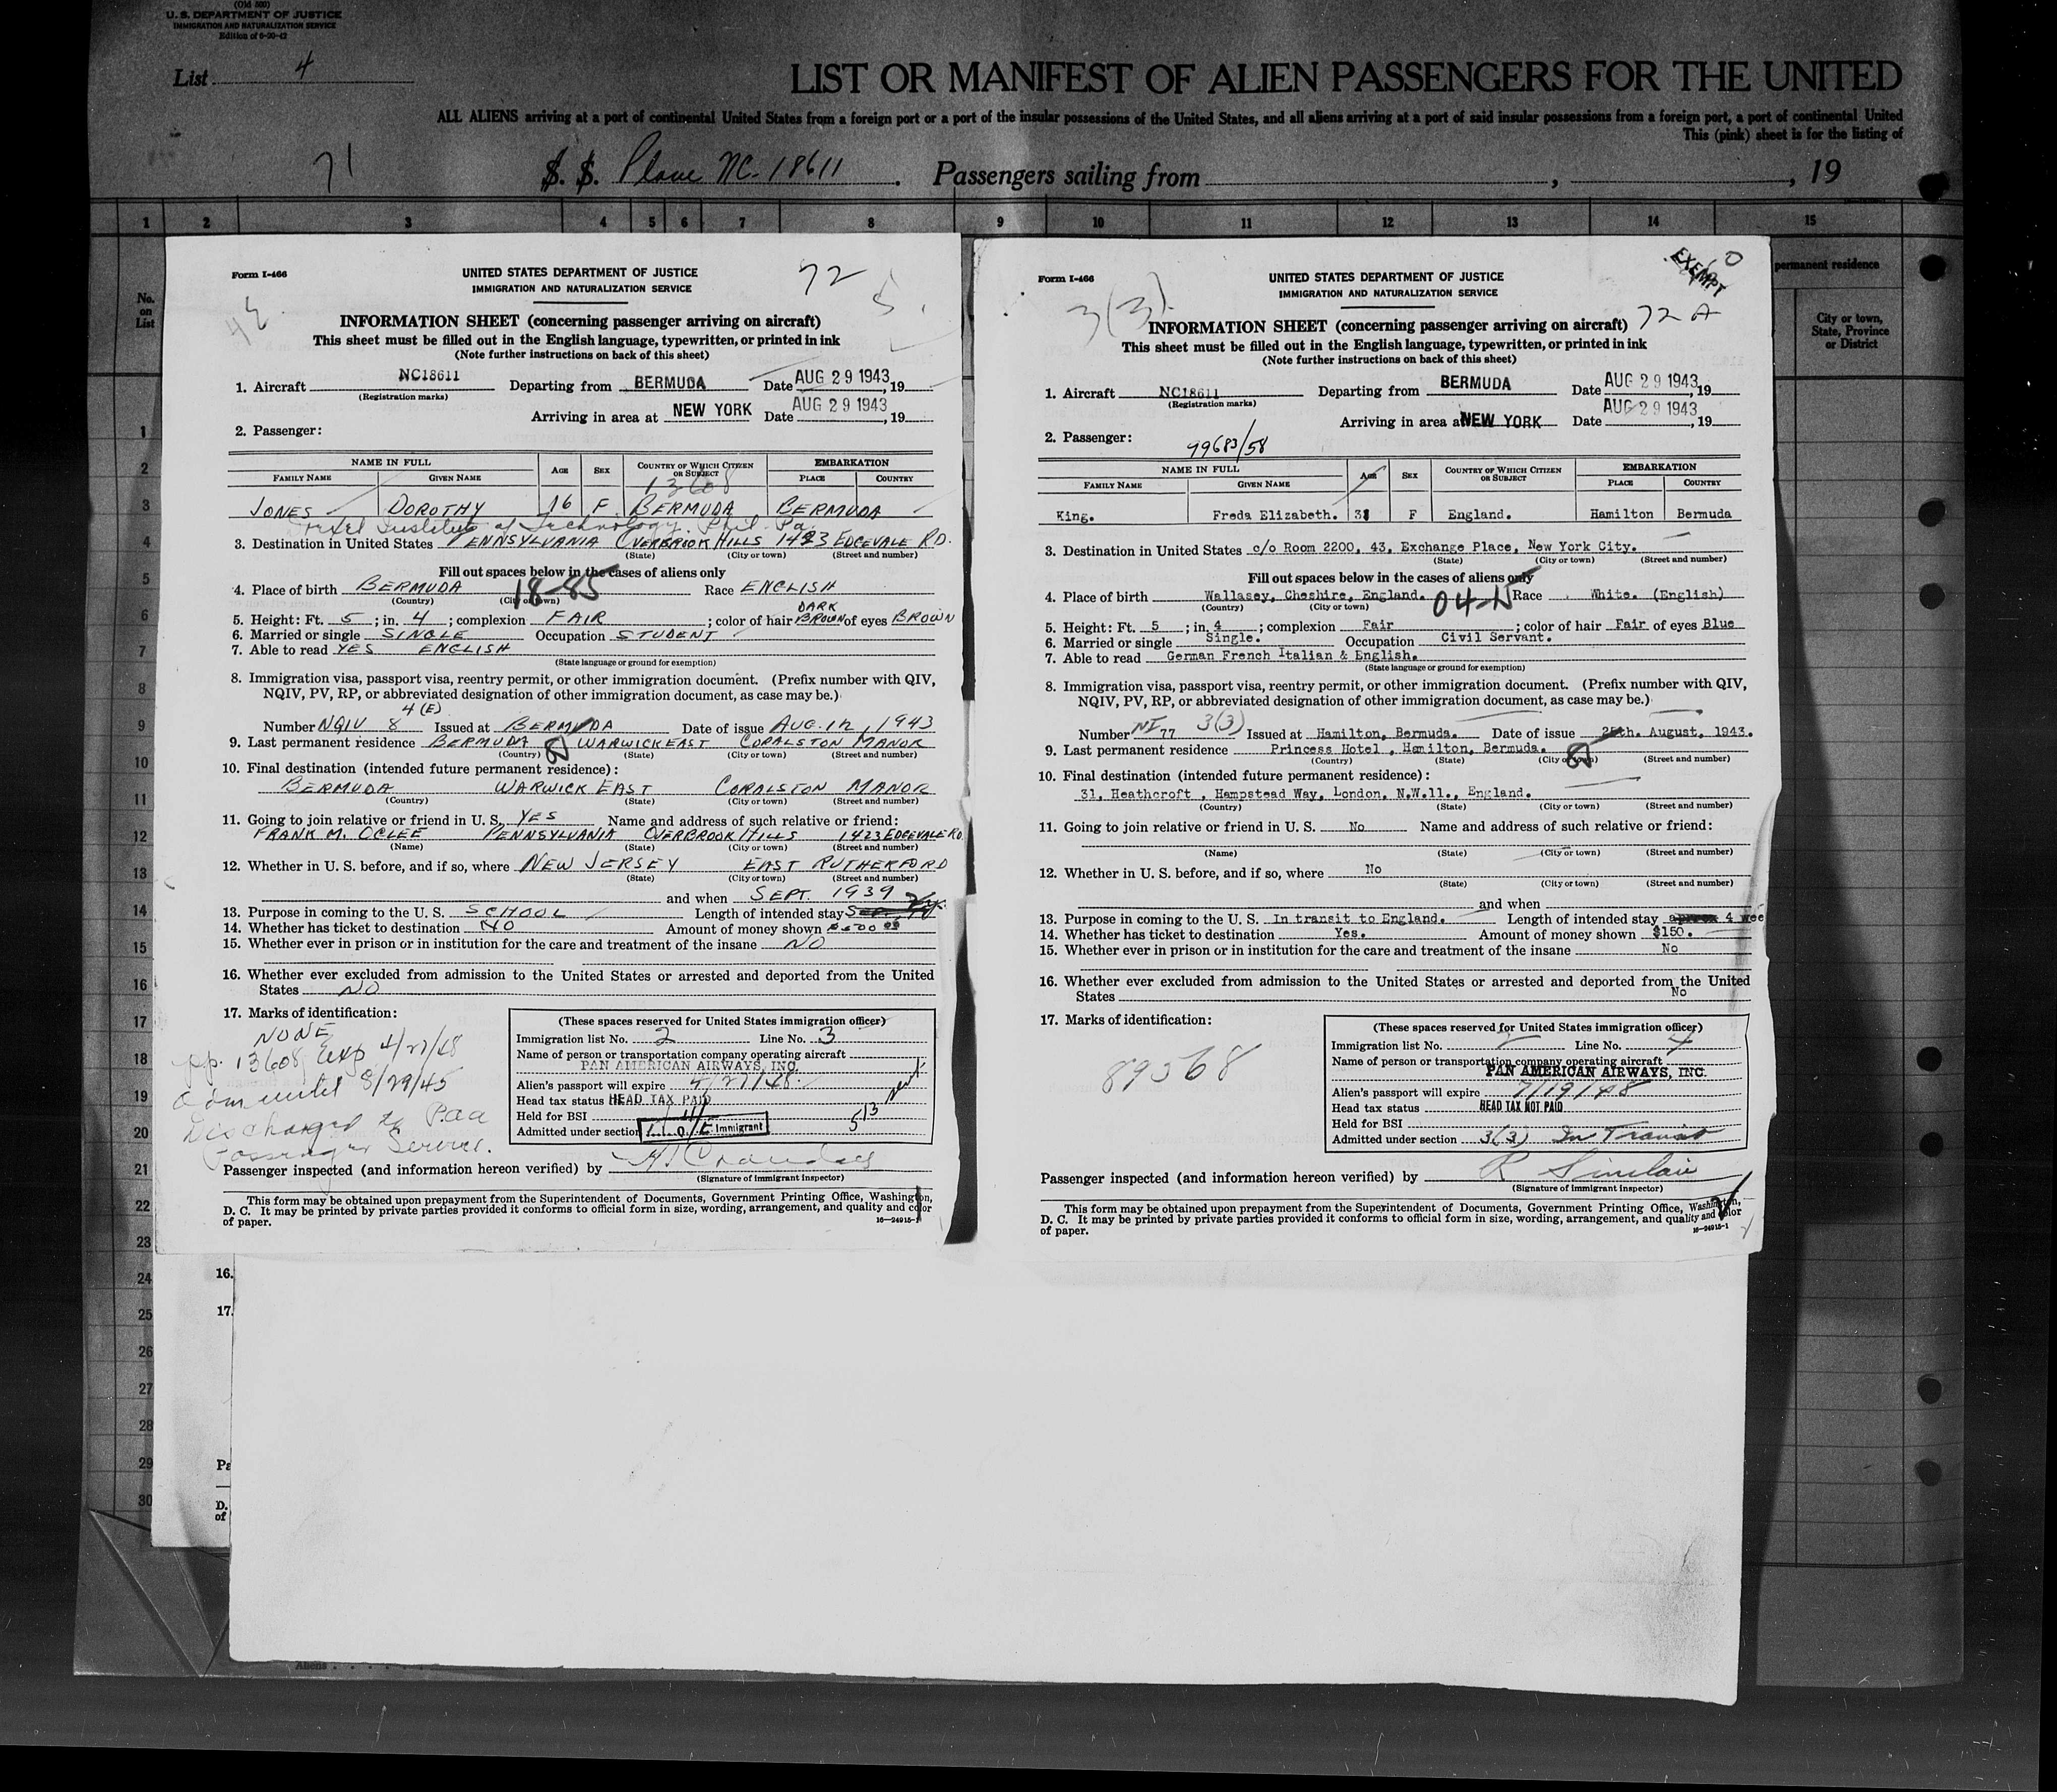 (Old 500)
U. S. DEPARTMENT OF JUSTICE
IMMIGRATION AND NATURALIZATION SERVICE
Edition of 6-20-42
List 4
LIST OR MANIFEST OF ALIEN PASSENGERS FOR THE UNITED
ALL ALIENS arriving at a port of continental United States from a foreign port or a port of the insular possessions of the United States, and all aliens arriving at a port of said insular possessions from a foreign port, a port of continental United
This (pink) sheet is for the listing of
71
S. S. Plane NC-18611. Passengers sailing from , , 19
1 2 3 4 5 6 7 8 9 10 11 12 13 14 15
permanent residence
No. on List
City or town, State, Province or District
Form I-466
UNITED STATES DEPARTMENT OF JUSTICE
IMMIGRATION AND NATURALIZATION SERVICE
72
5
4E
INFORMATION SHEET (concerning passenger arriving on aircraft)
This sheet must be filled out in the English language, typewritten, or printed in ink
(Note further instructions on back of this sheet)
1. Aircraft NC18611 Departing from BERMUDA Date AUG 29 1943, 19
(Registration marks)
Arriving in area at NEW YORK Date AUG 29 1943, 19
2. Passenger:
NAME IN FULL AGE SEX COUNTRY OF WHICH CITIZEN OR SUBJECT EMBARKATION
FAMILY NAME GIVEN NAME PLACE COUNTRY
13608
JONES DOROTHY 16 F. BERMUDA BERMUDA
Drexel Institute of Technology. Phil. Pa
3. Destination in United States PENNSYLVANIA OVERBROOK HILLS 1423 EDGEVALE RD.
(State) (City or town) (Street and number)
Fill out spaces below in the cases of aliens only
4. Place of birth BERMUDA 18-85 Race ENGLISH
(Country) (City or town)
5. Height: Ft. 5; in. 4; complexion FAIR; color of hair DARK BROWN of eyes BROWN
6. Married or single SINGLE Occupation STUDENT
7. Able to read YES ENGLISH
(State language or ground for exemption)
8. Immigration visa, passport visa, reentry permit, or other immigration document. (Prefix number with QIV,
NQIV, PV, RP, or abbreviated designation of other immigration document, as case may be.)
4 (E)
Number NQIV 8 Issued at BERMUDA Date of issue AUG. 12, 1943
9. Last permanent residence BERMUDA WARWICK EAST CORALSTON MANOR
(Country) (State) (City or town) (Street and number)
10. Final destination (intended future permanent residence):
BERMUDA WARWICK EAST CORALSTON MANOR
(Country) (State) (City or town) (Street and number)
11. Going to join relative or friend in U. S. YES Name and address of such relative or friend:
FRANK M. PENNSYLVANIA OVERBROOK HILLS 1423 EDGEVALE RD
(Name) (State) (City or town) (Street and number)
12. Whether in U. S. before, and if so, where NEW JERSEY EAST RUTHERFORD
(State) (City or town) (Street and number)
and when SEPT. 1939
13. Purpose in coming to the U. S. SCHOOL Length of intended stay
14. Whether has ticket to destination NO Amount of money shown
15. Whether ever in prison or in institution for the care and treatment of the insane NO
16. Whether ever excluded from admission to the United States or arrested and deported from the United
States NO
17. Marks of identification:
NONE
pp. 13608 Exp 4/27/48
Adm until 8/29/45
Discharged to Paa
Passenger Service.
(These spaces reserved for United States immigration officer)
Immigration list No. 2 Line No. 3
Name of person or transportation company operating aircraft
PAN AMERICAN AIRWAYS, INC.
Alien's passport will expire 4/27/48
Head tax status HEAD TAX PAID
Held for BSI
Admitted under section Immigrant
513
Passenger inspected (and information hereon verified) by
(Signature of immigrant inspector)
This form may be obtained upon prepayment from the Superintendent of Documents, Government Printing Office, Washington,
D. C. It may be printed by private parties provided it conforms to official form in size, wording, arrangement, and quality and color
of paper.
16—24915-1
Form I-466
UNITED STATES DEPARTMENT OF JUSTICE
IMMIGRATION AND NATURALIZATION SERVICE
EXEMPT
3(3)
72 A
INFORMATION SHEET (concerning passenger arriving on aircraft)
This sheet must be filled out in the English language, typewritten, or printed in ink
(Note further instructions on back of this sheet)
1. Aircraft NC18611 Departing from BERMUDA Date AUG 29 1943, 19
(Registration marks)
Arriving in area at NEW YORK Date AUG 29 1943, 19
2. Passenger:
99683/58
NAME IN FULL AGE SEX COUNTRY OF WHICH CITIZEN OR SUBJECT EMBARKATION
FAMILY NAME GIVEN NAME PLACE COUNTRY
King. Freda Elizabeth. F England. Hamilton Bermuda
3. Destination in United States c/o Room 2200, 43, Exchange Place, New York City.
(State) (City or town) (Street and number)
Fill out spaces below in the cases of aliens only
4. Place of birth Wallasey, Cheshire, England. Race White. (English)
(Country) (City or town)
5. Height: Ft. 5; in. 4; complexion Fair; color of hair Fair of eyes Blue
6. Married or single Single. Occupation Civil Servant.
7. Able to read German French Italian & English.
(State language or ground for exemption)
8. Immigration visa, passport visa, reentry permit, or other immigration document. (Prefix number with QIV,
NQIV, PV, RP, or abbreviated designation of other immigration document, as case may be.)
Number NI 77 3(3) Issued at Hamilton, Bermuda. Date of issue 25th. August, 1943.
9. Last permanent residence Princess Hotel, Hamilton, Bermuda.
(Country) (State) (City or town) (Street and number)
10. Final destination (intended future permanent residence):
31, Heathcroft, Hampstead Way, London, N.W.11., England.
(Country) (State) (City or town) (Street and number)
11. Going to join relative or friend in U. S. No Name and address of such relative or friend:
(Name) (State) (City or town) (Street and number)
12. Whether in U. S. before, and if so, where No
(State) (City or town) (Street and number)
and when
13. Purpose in coming to the U. S. In transit to England. Length of intended stay approx 4 wee
14. Whether has ticket to destination Yes. Amount of money shown $150.
15. Whether ever in prison or in institution for the care and treatment of the insane No
16. Whether ever excluded from admission to the United States or arrested and deported from the United
States No
17. Marks of identification:
89568
(These spaces reserved for United States immigration officer)
Immigration list No. 2 Line No. 4
Name of person or transportation company operating aircraft
PAN AMERICAN AIRWAYS, INC.
Alien's passport will expire 7/19/48
Head tax status HEAD TAX NOT PAID
Held for BSI
Admitted under section 3(3) In Transit
Passenger inspected (and information hereon verified) by R Sinclair
(Signature of immigrant inspector)
This form may be obtained upon prepayment from the Superintendent of Documents, Government Printing Office, Washington,
D. C. It may be printed by private parties provided it conforms to official form in size, wording, arrangement, and quality and color
of paper.
16—24915-1
1
2
3
4
5
6
7
8
9
10
11
12
13
14
15
16
17
18
19
20
21
22
23
24
25
26
27
28
29
30
16.
17.
Pa
D.
of
Aliens